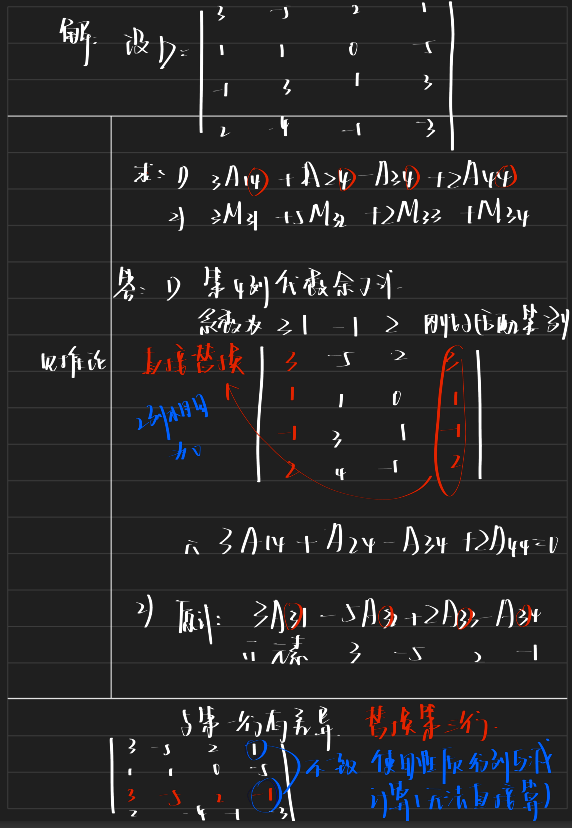 解: 设D=
3 -5 2 1
1 1 0 -5
-1 3 1 3
2 -4 -1 -3
求: 1) 3A14 + A24 - A34 + 2A44
2) 3M31 + 5M32 + 2M33 + M34
答: 1) 第4列代数余子式
系数为 3 1 -1 2 第
直接替换
3 -5 2 3
1 1 0 1
-1 3 1 -1
2 4 -1 2
2列相同
为0
∴ 3A14 + A24 - A34 + 2A44 = 0
2) 原式: 3A31 - 5A32 + 2A33 - A34
元素 3 -5 2 -1
与第一行有差异 替换第三行
3 -5 2 1
1 1 0 -5
3 -5 2 -1
2 -4 -1 -3
不一致 使用
计算(无法直接算)